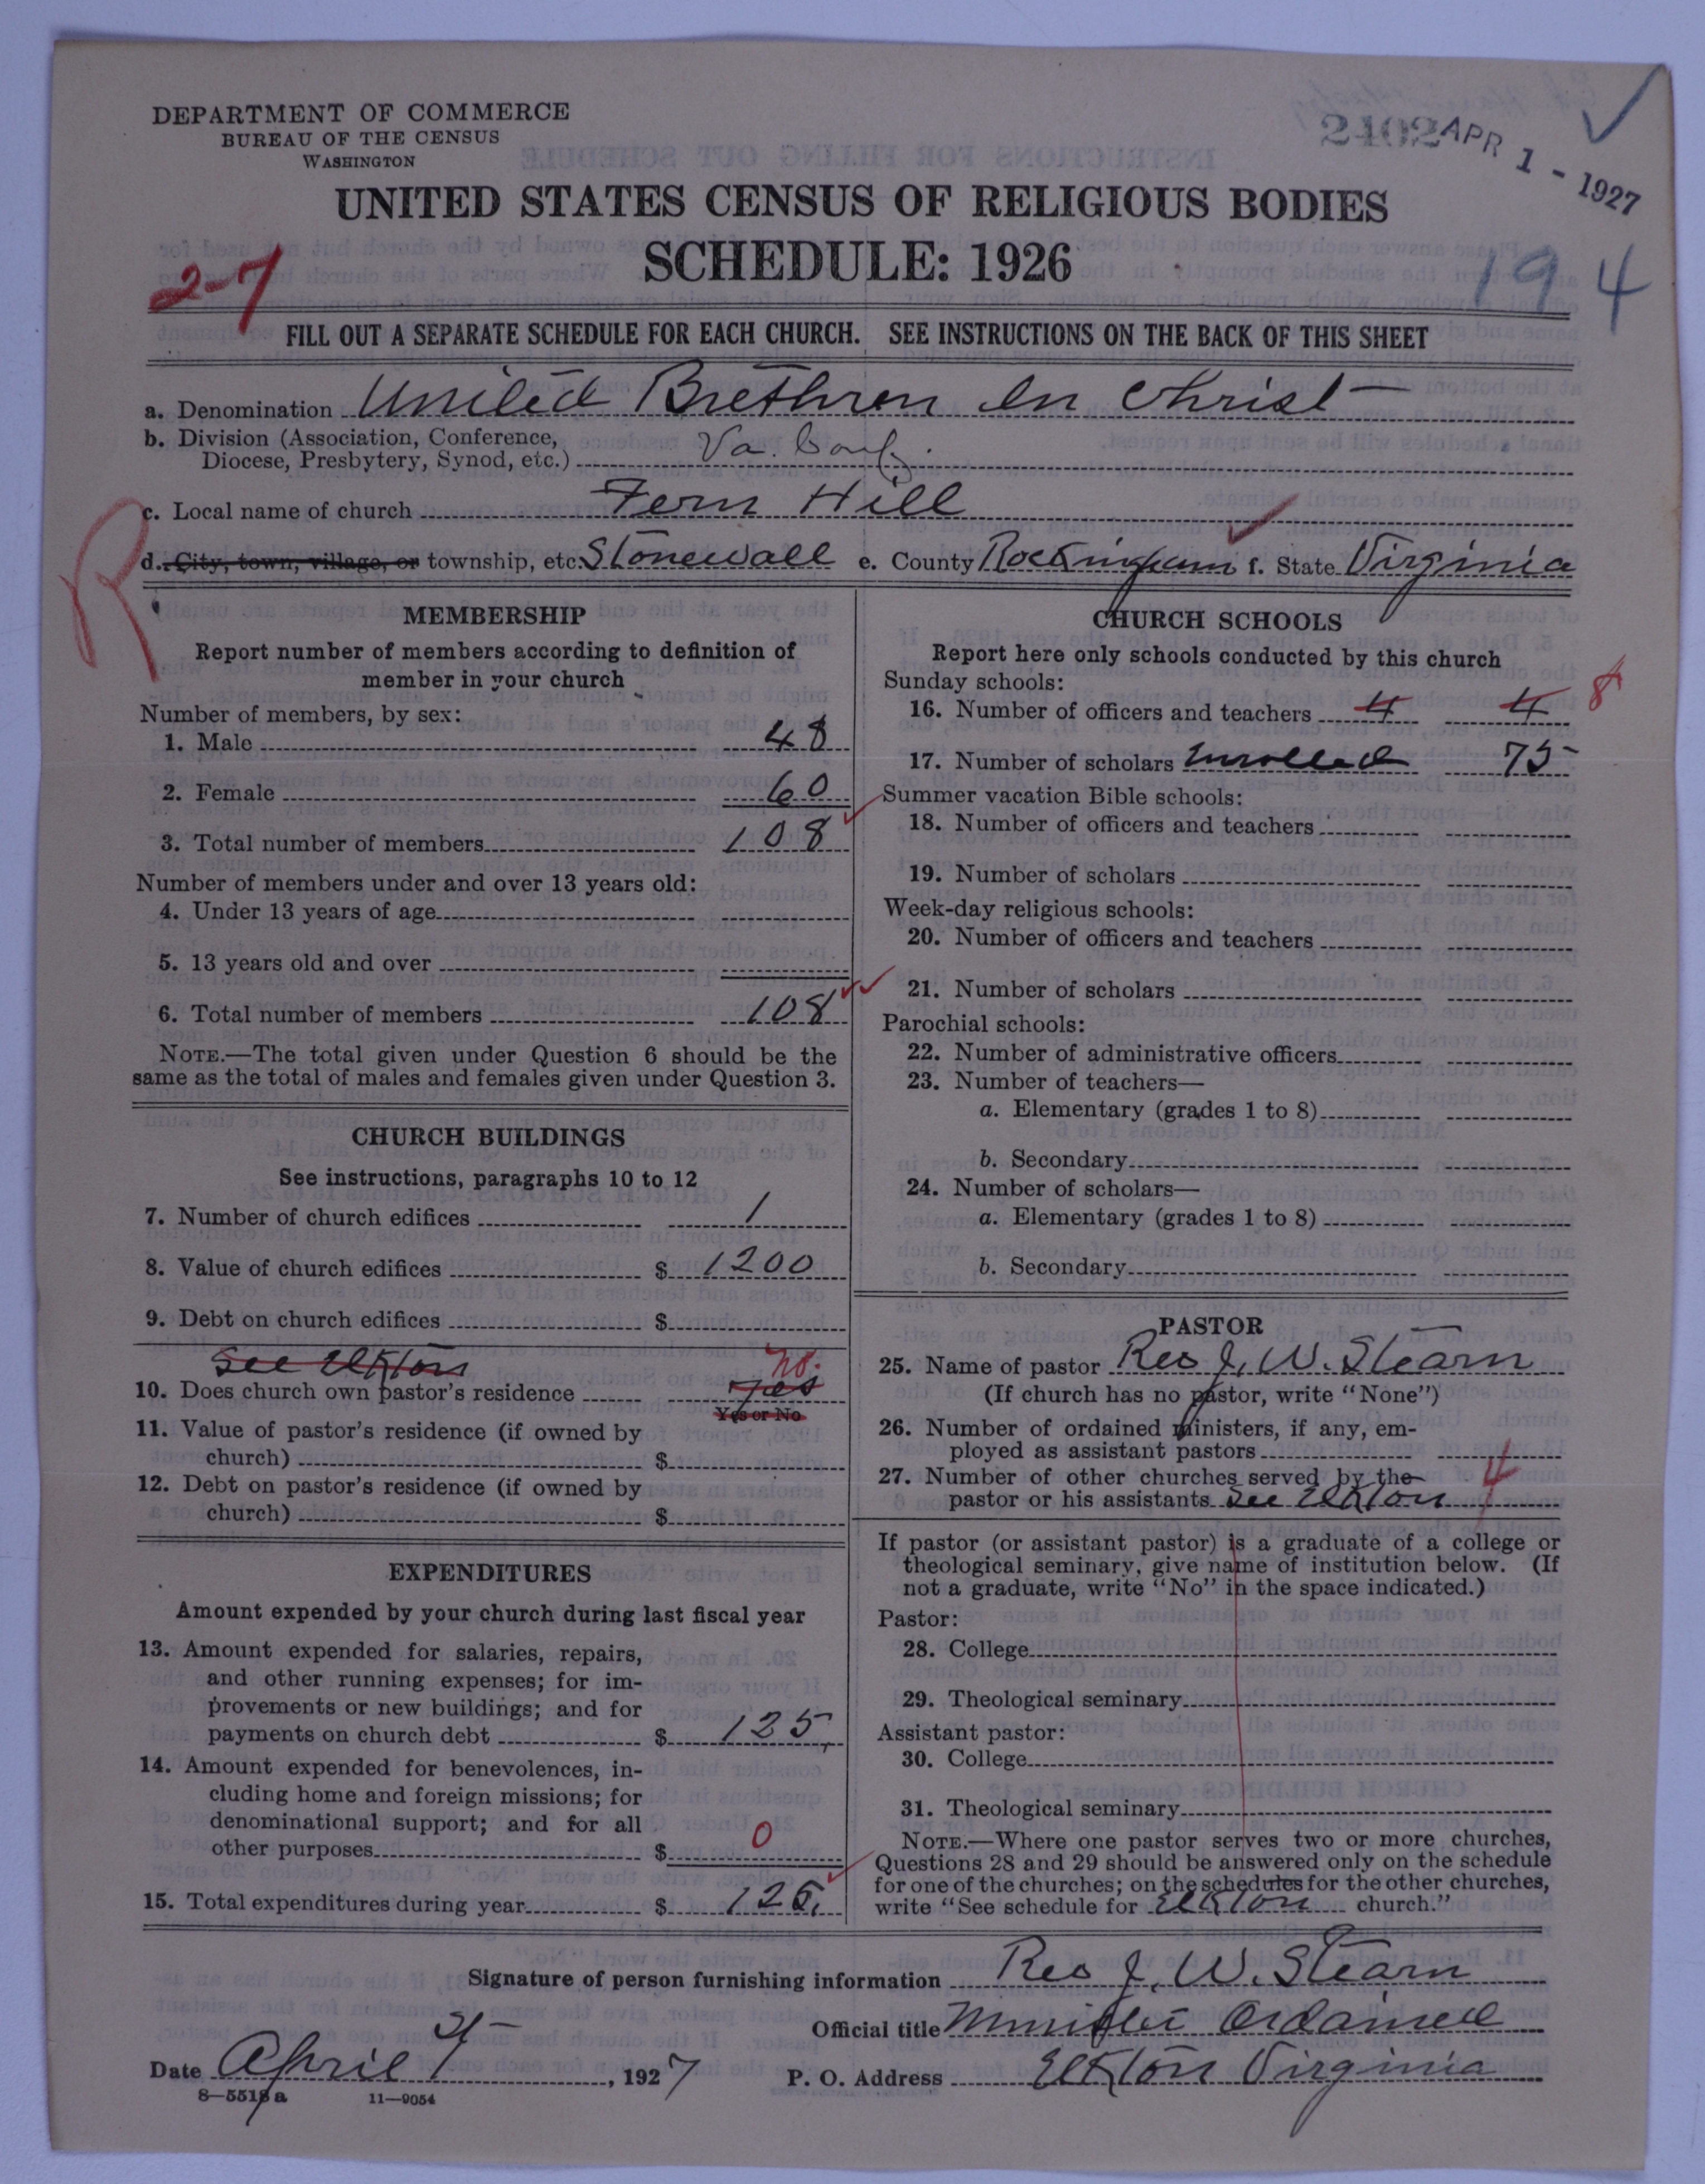 DEPARTMENT OF COMMERCE
BUREAU OF THE CENSUS
WASHINGTON
2402 APR 1 - 1927
UNITED STATES CENSUS OF RELIGIOUS BODIES
SCHEDULE: 1926
2-7
194
FILL OUT A SEPARATE SCHEDULE FOR EACH CHURCH. SEE INSTRUCTIONS ON THE BACK OF THIS SHEET
a. Denomination United Brethren In Christ
b. Division (Association, Conference,
Diocese, Presbytery, Synod, etc.) Va. Conf.
c. Local name of church Fern Hill
R
d. City, town, village, or township, etc. Stonewall e. County Rockingham f. State Virginia
MEMBERSHIP
Report number of members according to definition of
member in your church
Number of members, by sex:
1. Male 48
2. Female 60
3. Total number of members 108
Number of members under and over 13 years old:
4. Under 13 years of age
5. 13 years old and over
6. Total number of members 108
NOTE.—The total given under Question 6 should be the
same as the total of males and females given under Question 3.
CHURCH BUILDINGS
See instructions, paragraphs 10 to 12
7. Number of church edifices 1
8. Value of church edifices $ 1200
9. Debt on church edifices $
See Elkton no.
10. Does church own pastor's residence yes
Yes or No
11. Value of pastor's residence (if owned by
church) $
12. Debt on pastor's residence (if owned by
church) $
EXPENDITURES
Amount expended by your church during last fiscal year
13. Amount expended for salaries, repairs,
and other running expenses; for im-
provements or new buildings; and for
payments on church debt $ 125,
14. Amount expended for benevolences, in-
cluding home and foreign missions; for
denominational support; and for all
other purposes $ 0
15. Total expenditures during year $ 125.
CHURCH SCHOOLS
Report here only schools conducted by this church
Sunday schools:
16. Number of officers and teachers 4 4 8
17. Number of scholars Enrolled 75
Summer vacation Bible schools:
18. Number of officers and teachers
19. Number of scholars
Week-day religious schools:
20. Number of officers and teachers
21. Number of scholars
Parochial schools:
22. Number of administrative officers
23. Number of teachers—
a. Elementary (grades 1 to 8)
b. Secondary
24. Number of scholars—
a. Elementary (grades 1 to 8)
b. Secondary
PASTOR
25. Name of pastor Rev J. W. Stearn
(If church has no pastor, write "None")
26. Number of ordained ministers, if any, em-
ployed as assistant pastors
27. Number of other churches served by the
pastor or his assistants See Elkton 4
If pastor (or assistant pastor) is a graduate of a college or
theological seminary, give name of institution below. (If
not a graduate, write "No" in the space indicated.)
Pastor:
28. College
29. Theological seminary
Assistant pastor:
30. College
31. Theological seminary
NOTE.—Where one pastor serves two or more churches,
Questions 28 and 29 should be answered only on the schedule
for one of the churches; on the schedules for the other churches,
write "See schedule for Elkton church."
Signature of person furnishing information Rev J. W. Stearn
Official title Minister Ordained
Date April , 1927
P. O. Address Elkton Virginia
8—5518 a 11—9054